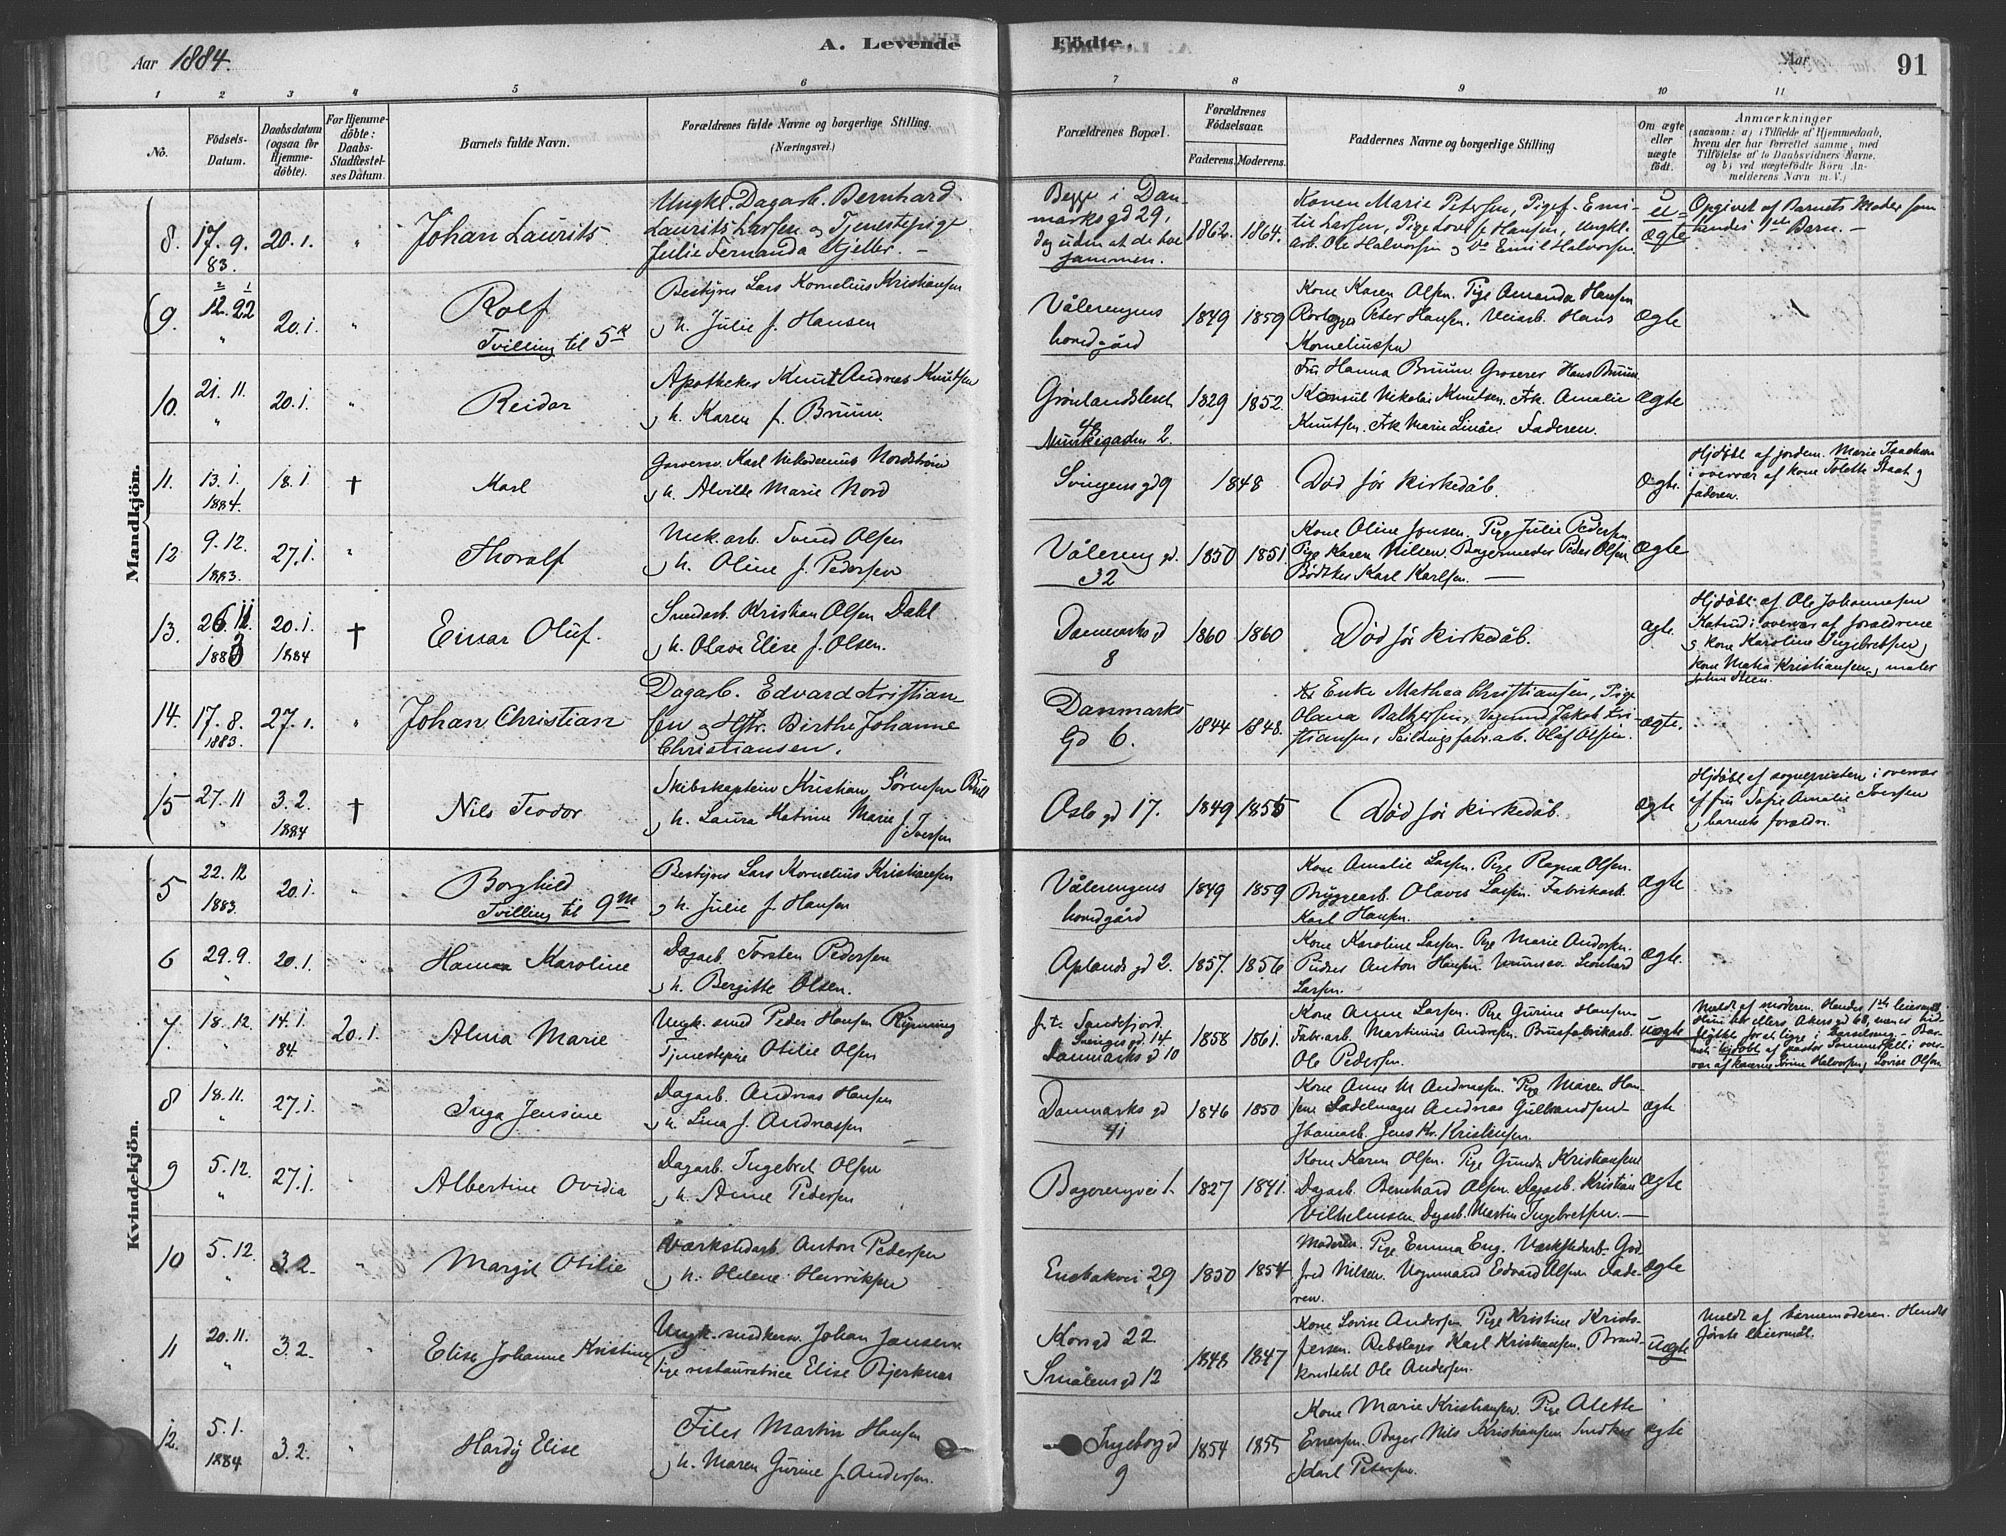 Aar 1884.
A. Levende Födte.
Aar
91
1 2 3 4 5 6 7 8 9 10 11
No.
Födsels-Datum.
Daabsdatum (ogsaa for Hjemmedöbte).
For Hjemmedöbte: Daabs-Stadfæstelses Datum.
Barnets fulde Navn.
Forældrenes fulde Navne og borgerlige Stilling. (Næringsvei.)
Forældrenes Bopæl.
Forældrenes Födselsaar. Faderens. Moderens.
Faddernes Navne og borgerlige Stilling
Om ægte eller uægte födt.
Anmærkninger
(saasom: a) i Tilfælde af Hjemmedaab, hvem der har forrettet samme, med Tilföielse af to Daabsvidners Navne, og b) ved uægtefödte Börn Anmelderens Navn m. V.)
Mandkjön.
8. 17. 9. 83. 20. 1. " Johan Laurits
Ungkl. Dagarb. Bernhard
Laurits Larsen og Tjenestepige
Julie Fernanda Kjeller. —
Begge i Dan-
marksgd 29,
dog uden at de bor
sammen.
1862. 1864.
Konen Marie Petersen, Pigef. Emi-
lie Larsen, Pige Lovise Hansen, Ungkl.
arb. Ole Halvorsen og Do Emil Halvorsen.
u-
ægte
Opgivet af Barnets Moder som
hendes 1ste Barn. —
9. 12. 22 " 20. 1. " Rolf
Tvilling til 5k
Bestyrer Lars Kornelius Kristiansen
h. Julie f. Hansen
Vålerengens
hovedgård
1849 1859
Kone Karen Olsen. Pige Amanda Hansen
Rørlægger Peter Hansen. Veiarb. Hans
Korneliussen
Ægte
10. 21. 11. " 20. 1. " Reidar
Apotheker Knut Andreas Knutsen
h. Karen f. Bruun.
Grønlandsleret
Munkegaden 2.
1829 1852.
Fru Hanna Bruun. Grosserer Hans Bruun
Konsul Nikolai Knutsen. Frk. Amalie
Knutsen. Frk Marie Linåe. Faderen.
Ægte
11. 13. 1. 1884. 18. 1 † Karl
Garversv. Karl Nikodemus Nordstrøm
h. Alvilde Marie Nord
Svingens gd 9
1848
Død før kirkedåb.
Ægte.
Hjdøbt af jordem. Marie Isachsen
i overvær af kone Tolette Staat og
faderen.
12 9. 12. 1883. 27. 1. " Thoralf
Mek. arb. Svend Olsen
h. Oline f. Pedersen
Vålereng gd.
32
1850 1851.
Kone Oline Jonsen. Pige Julie Pedersen.
Pige Karen Nilsen. Bagermester Peder Olsen
Bødtker Karl Karlsen. —
Ægte
13. 26. 11. 1883 20. 1. 1884 † Einar Oluf.
Smedarb. Kristian Olsen Dahl
h. Olava Elise f. Olsen.
Danmarks gd
8
1860 1860
Død før kirkedåb.
Ægte.
Hjdøbt af Ole Johannesen
Katrud i overvær af foraldrene
og kone Karoline Ingebretsen,
kone Matia Kristiansen, maler
John Steen.
14. 17. 8. 1883. 27. 1. " Johan Christian
Dagarb. Edvard Kristian-
sen og Hstr. Birthe Johanne
Christiansen.
Danmarks
Gd 6.
1844 1848.
Enke Mathea Christiansen, Pige
Olava Balkersen, Vognmd Jakob Kri-
stiansen, Seildugsfabr.arb. Olaf Olsen.
ægte.
15 27. 11 " 3. 2. 1884 † Nils Teodor
Skibskaptein Kristian Sørensen Bull
h. Laura Katrine Marie f.
Iversen
Oslo gd 17.
1849 1855
Død før kirkedåb.
Ægte
Hjdøbt af sognepresten i overvær
af fru Sofie Amalie Iversen
og barnets foraldre.
Kvindekjön.
5 22. 12 1883. 20. 1. " Borghild
Tvilling til 9m
Bestyrer Lars Kornelius Kristiansen
h. Julie f. Hansen
Vålerengens
hovedgård
1849 1859
Kone Amalie Larsen. Pige Ragna Olsen.
Bryggearb. Olaves Larsen. Fabrikarb.
Karl Hansen.
Ægte
6 29. 9. 20. 1. " Hanna Karoline
Dagarb. Torsten Pedersen
h. Bergitte Olsen.
Oplands gd 2.
1857. 1856
Kone Karoline Larsen. Pige Marie Andersen.
Pudser Anton Hansen. Leonhard
Larsen.
Ægte.
7. 18. 12. " 14. 1. 84 20. 1. Alma Marie
Ungk. smed Peder Hansen Rynning
Tjenestepige Otilie Olsen
f. t. Sandefjord.
Sveriges gd. 14
Danmarks gd 10
1858 1861.
Kone Anne Larsen. Pige Gurine Hansen
Fabr.arb. Martinius Andresen. Brusfabrikarb.
Ole Pedersen.
Uægte
Meldt af moderen. Hendes 1ste leiermål.
8 18. 11. " 27. 1. Inga Jensine
Dagarb. Andreas Hansen
h. Lina f. Andreassen
Danmarks gd
41
1846 1850
Kone Anne M Andreassen. Pige Maren Han-
sen. Sadelmager Andreas Gulbrandsen
Jens Kr. Kristensen.
Ægte
9 5. 12. " 27. 1. Albertine Ovidia
Dagarb. Ingebret Olsen
h. Anne Petersen
Bagerengvei 1.
1827 1841.
Kone Karen Olsen. Pige Gunda Kristiansen
Dagarb. Bernhard Olsen. Dagarb. Kristian
Vilhelmsen. Dagarb. Martin Ingebretsen. —
Ægte
10 5. 12. " 3. 2. " Margit Otilie
Værkstedarb. Anton Petersen
h. Helene Henriksen
Enebakvei 29
1850 1854
Moderen. Pige Emma Eng. Værkstedarb. God-
fred Nilsen. Vognmand Edvard Olsen. Fade-
ren.
Ægte
11 20. 11. " 3. 2. " Elise Johanne Kristine
Ungk. snedkersv. Johan Jansen.
Pige restauratrice Elise Bjerknes
Korsgd 22
Smålens gd 12
1848 1847
Kone Lovise Andersen. Pige Kristine Krist-
fersen. Rebslager Karl Kristiansen. Brand-
konstabl Ole Andersen.
Uægte
Meldt af barnemoderen. Hendes
første leiermål.
12. 5. 1. 1884 3. 2. " Hardy Elise
Filer Martin Hansen
h. Maren Gurine f. Andersen.
Ingeborg gd
9
1854 1855
Kone Marie Kristiansen. Pige Alette
Eversen. Bager Nils Kristiansen. Snedker
Karl Petersen.
Ægte